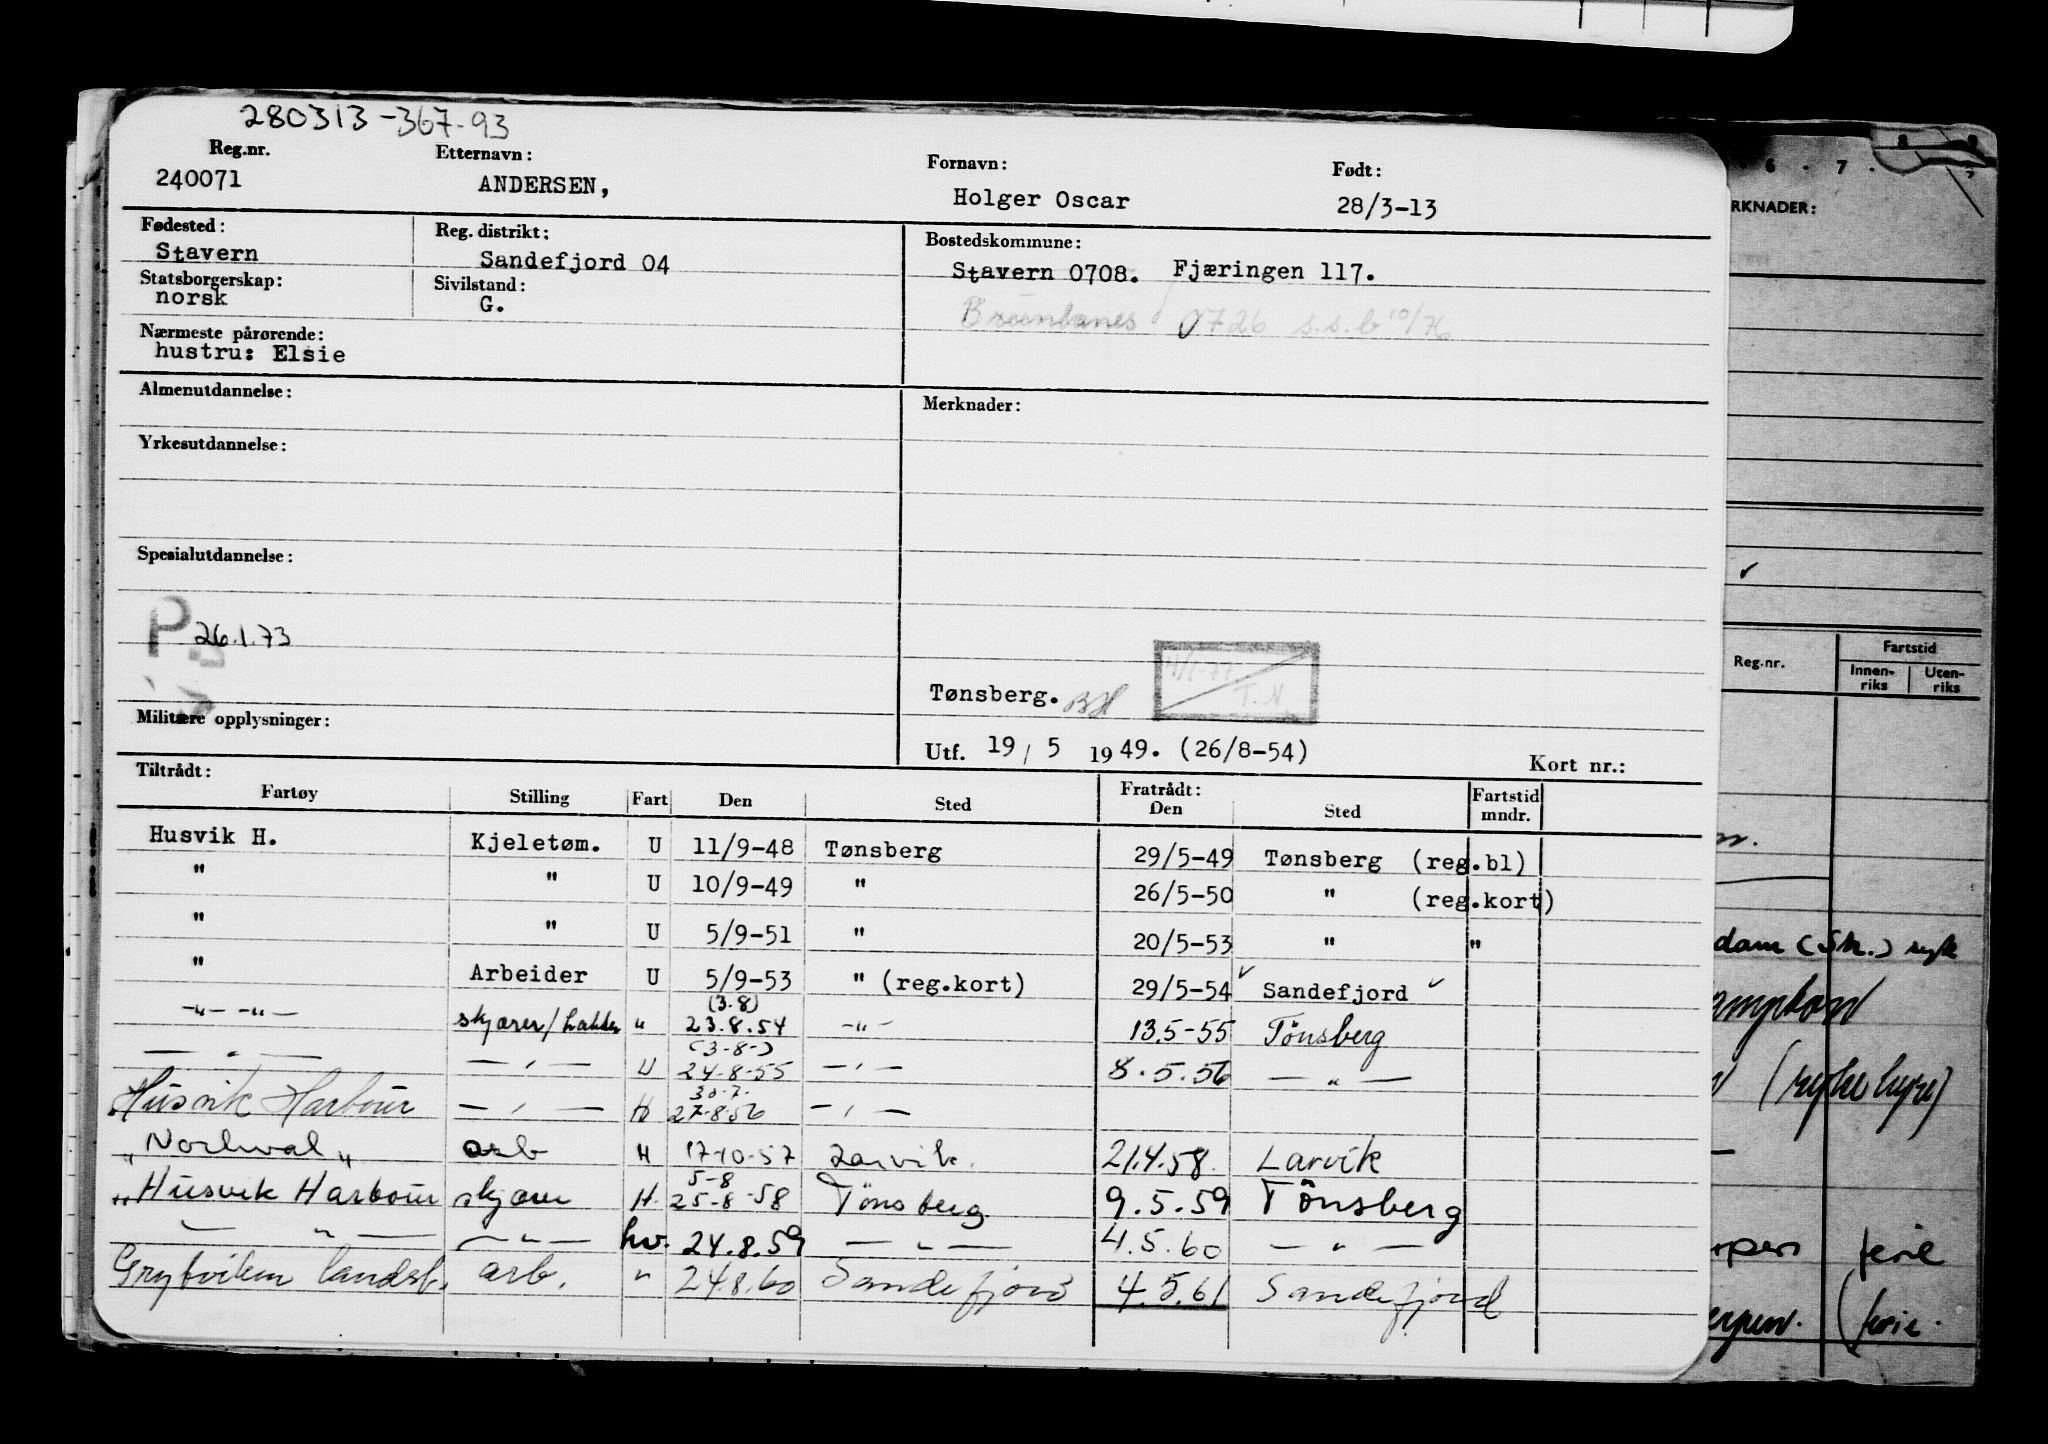 280313-367-93
Reg.nr. Etternavn: Fornavn: Født:
240071 ANDERSEN, Holger Oscar 28/3-13
Fødested: Reg. distrikt: Bostedskommune:
Stavern Sandefjord 04 Stavern 0708. Fjæringen 117.
Statsborgerskap: Sivilstand:
norsk G.
Brunlanes 0726 s.s.b 10/76
Nærmeste pårørende:
hustru: Elsie
Almenutdannelse: Merknader:
Yrkesutdannelse:
Spesialutdannelse:
P 26.1.73
Tønsberg. T.N.
Militære opplysninger:
Utf. 19/5 1949. (26/8-54) Kort nr.:
Tiltrådt: Fratrådt:
Fartøy Stilling Fart Den Sted Den Sted Fartstid mndr.
Husvik H. Kjeletøm. U 11/9-48 Tønsberg 29/5-49 Tønsberg (reg.bl)
" " U 10/9-49 " 26/5-50 " (reg.kort)
" " U 5/9-51 " 20/5-53 " "
" Arbeider U 5/9-53 " (reg.kort) 29/5-54 Sandefjord
(3.8)
-"- -"- skjærer/ " 23.8.54 -"- 13.5-55 Tönsberg
(3-8-)
— " — — " — U 24-8-55 — " — 8.5.56 — " —
30.7.
Husvik Harbour — " — H 27-8-56 — " —
"Norhval" arb H 17-10-57 Larvik. 21.4.58. Larvik
5-8
"Husvik Harbour skjærer H 25-8-58 Tönsberg 9.5.59 Tönsberg
— " — — " — hv. 24.8.59 — " — 4.5.60 — " —
Grytviken landst. arb. " 24.8.60 Sandefjord 4.5.61 Sandefjord
6. 7.
RKNADER:
Reg.nr. Fartstid
Innenriks Utenriks
dam (Sk.) syk
(syke hyre)
ferie
(ferie.